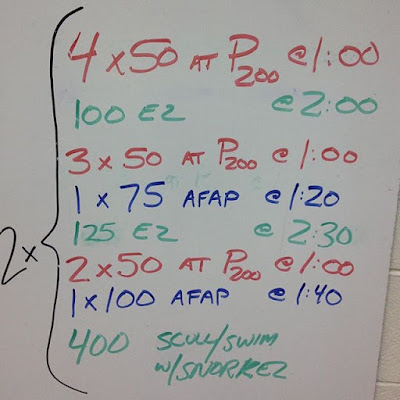 4 x 50 AT P200 @ 1:00
100 EZ @ 2:00
3 x 50 AT P200 @ 1:00
1 x 75 AFAP @ 1:20
125 EZ @ 2:30
2 x
2 x 50 AT P200 @ 1:00
1 x 100 AFAP @ 1:40
400 SCULL/SWIM
W/SNORKEL